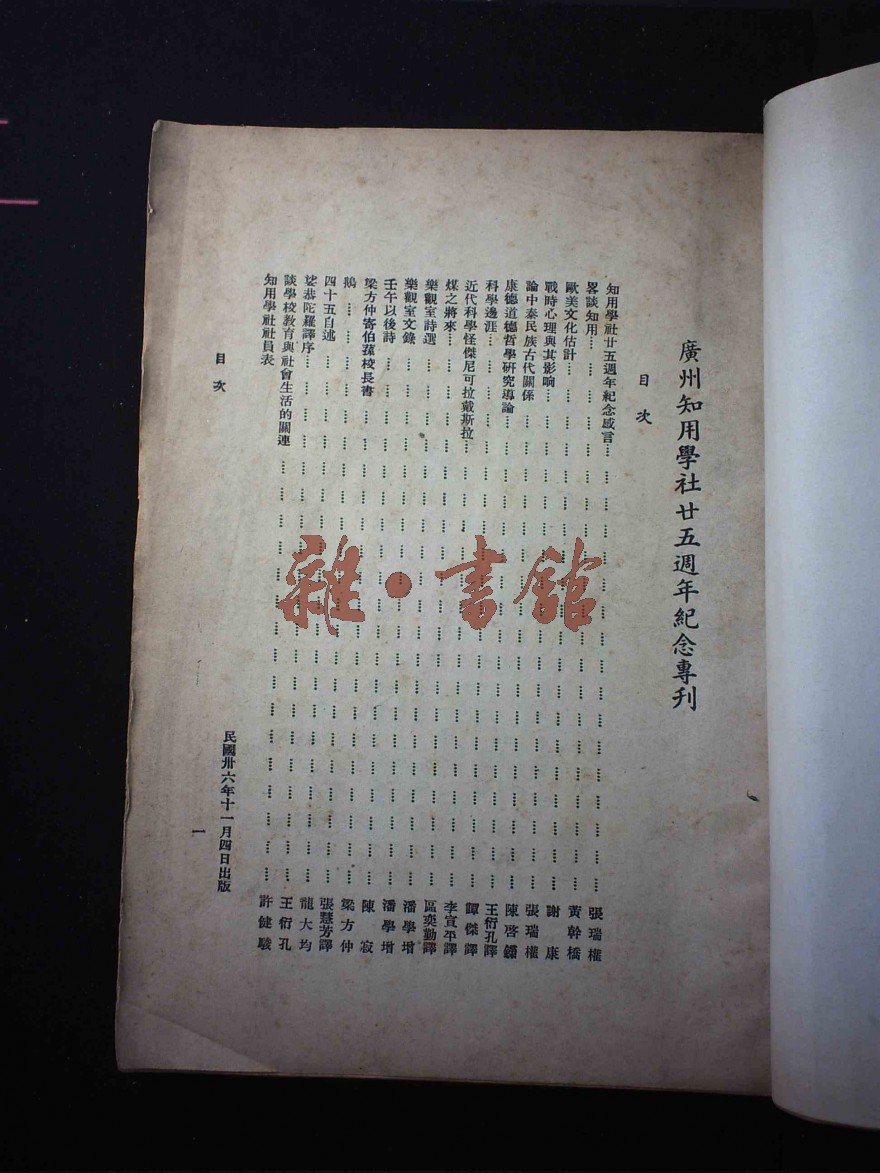 廣州知用學社廿五週年紀念專刊
目次
知用學社廿五週年紀念感言………………張瑞權
畧談知用………………黃幹橋
歐美文化估計………………謝康
戰時心理與其影响………………張瑞權
論中泰民族古代關係………………陳啓鏘
康德道德哲學硏究導論………………王衍孔譯
科學邊涯………………譚傑譯
近代科學怪傑尼可拉戴斯拉………………李宣平譯
煤之將來………………區奕勤譯
樂觀室詩選………………潘學增
樂觀室文錄………………潘學增
壬午以後詩………………陳寂
梁方仲寄伯蓀校長書………………梁方仲
鵝………………張慧芳譯
四十五自述………………龍大均
娑恭陀羅譯序………………王衍孔
談學校教育與社會生活的關連………………許健駿
知用學社社員表
民國卅六年十一月四日出版
目次
一
雜·書館